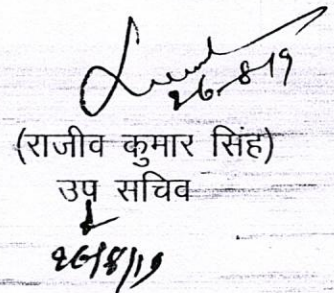 26-8-19
(राजीव कुमार सिंह)
उप सचिव
26/8/19